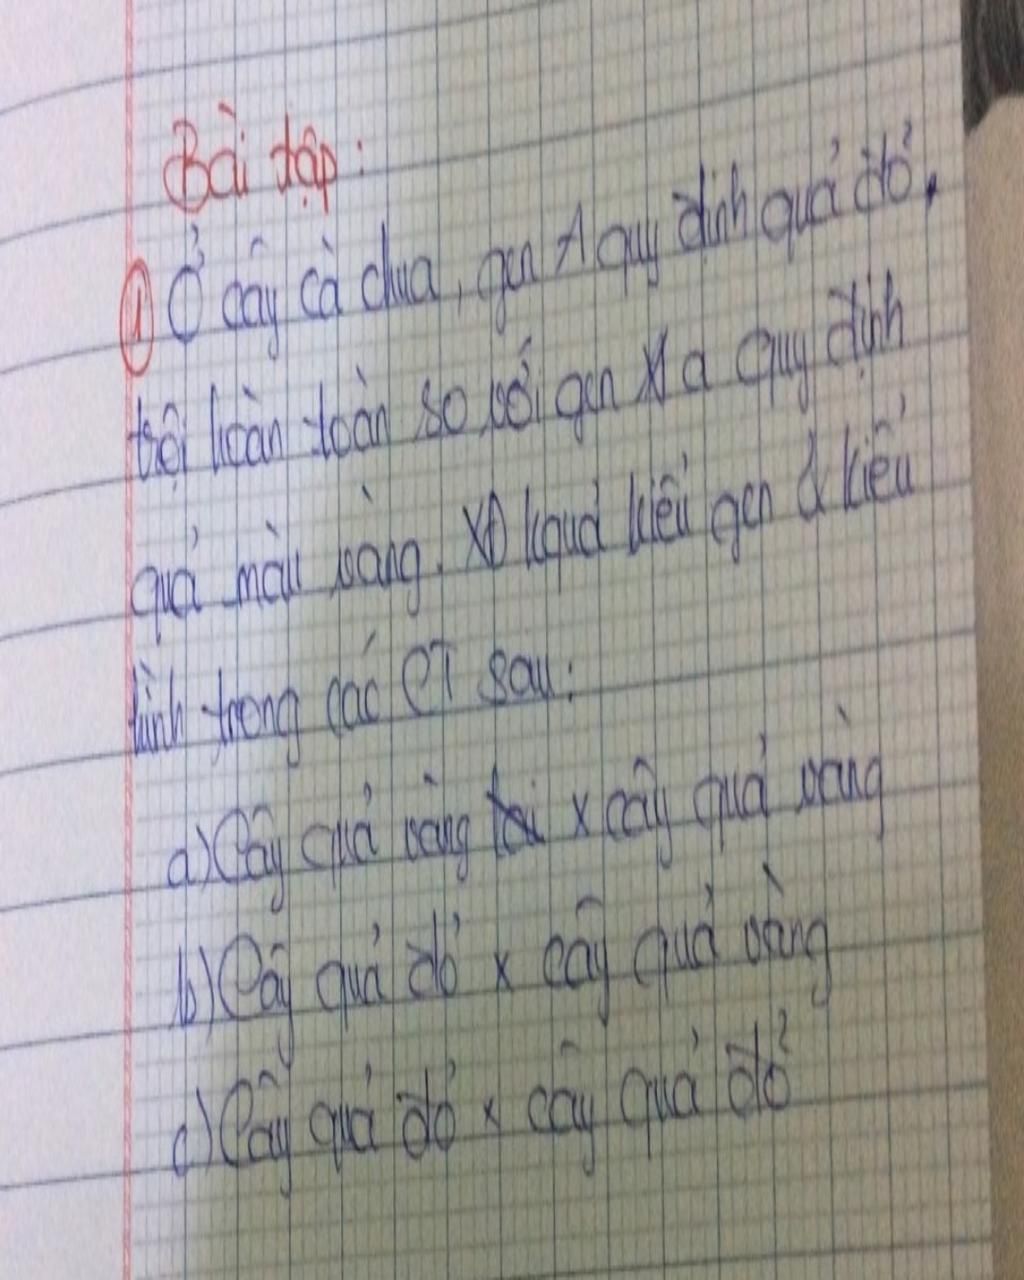 Bài tập:
① Ở cây cà chua, gen A quy định quả đỏ,
trội hoàn toàn so với gen a quy định
quả màu vàng. XĐ kquả kiểu gen & kiểu
hình trong các PT sau:
a) Cây quả vàng x cây quả vàng
b) Cây quả đỏ x cây quả vàng
c) Cây quả đỏ x cây quả đỏ